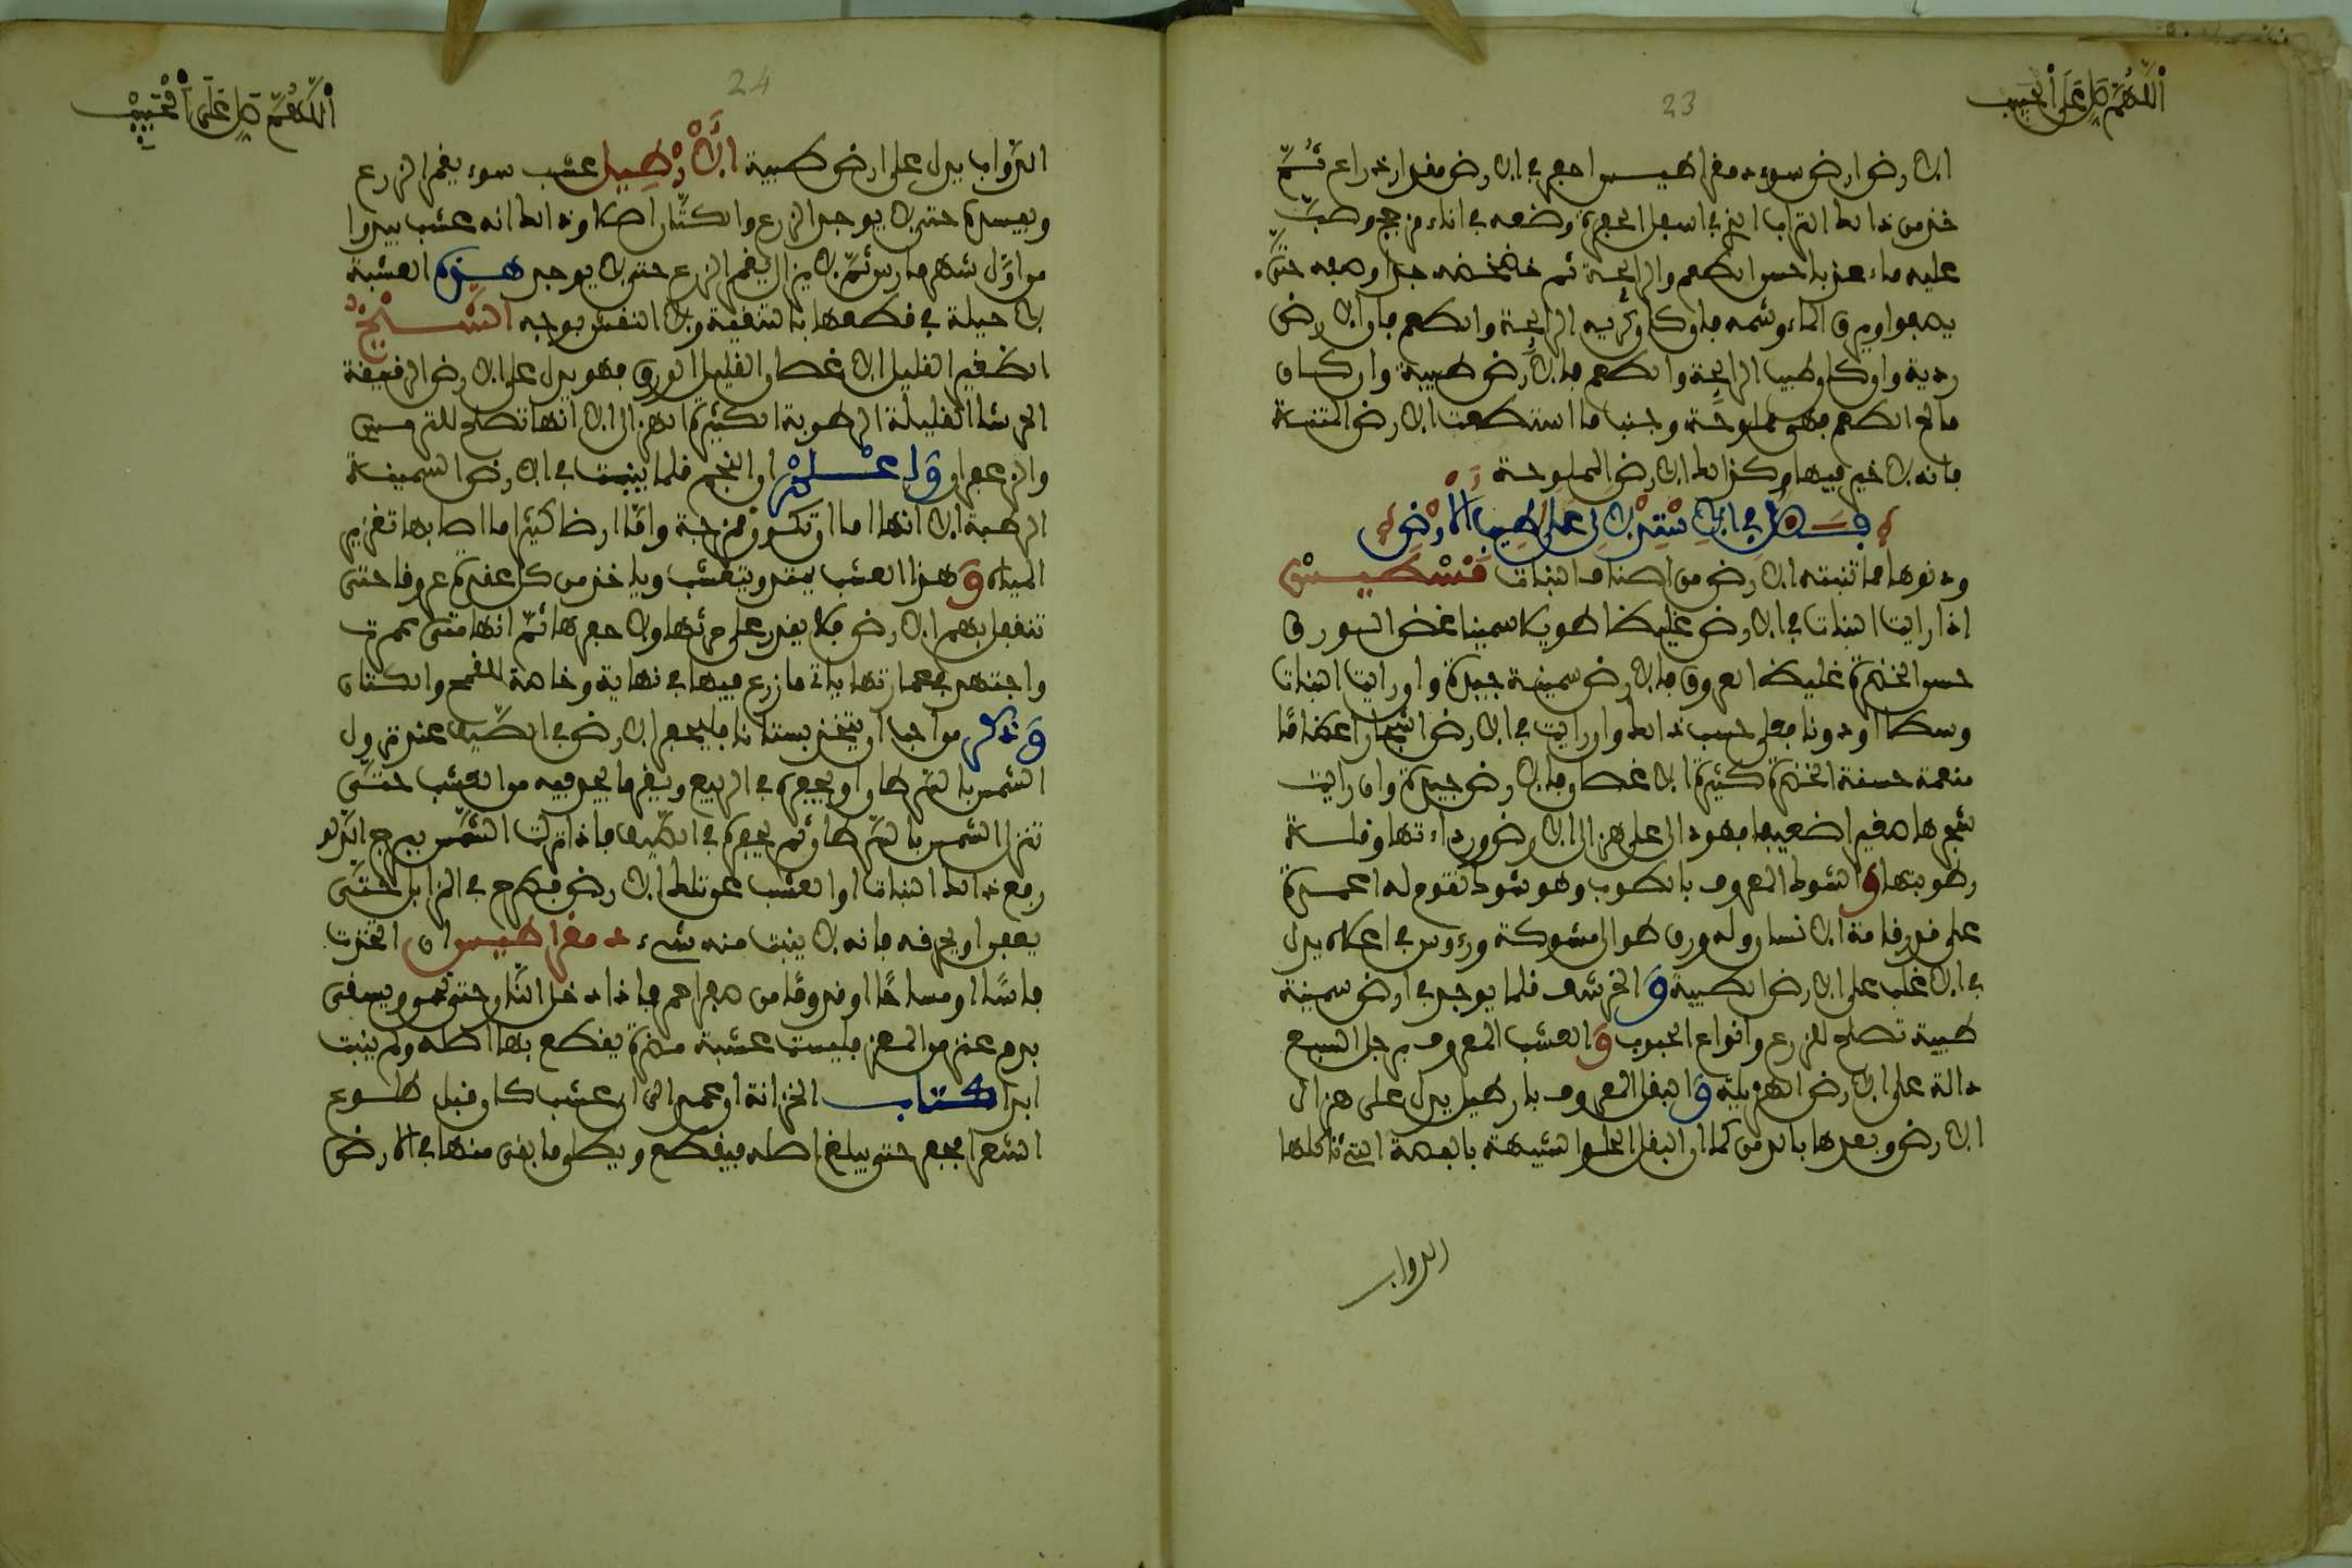 اللهم صل على الحبيب
23
الارض ارض سوء دمقراطيس احفر في الارض مقدار ذراع ثم
خذ من ذالك التراب الذي في اسفل الحفرة وضعه في اناء من زجاج وصب
عليه ماء عذبا حسن الطعم والرايحة ثم خضخضه جدا ودعه حتى
يصفوا ويرق الماء وشمه فان كان كريه الرايحة والطعم فان الارض
ردية وان كان طيب الرايحة والطعم فالارض طيبة وان كان
مالح الطعم فهي مملوحة وجنب ما استطعت الارض المنتنة
فانه لا خير فيها وكذالك الارض المملوحة
فصل في الاستدلال على طيب الارض
ودنوها مما تنبته الارض من اصناف النبات قسطيس
اذا رايت النبات في الارض غليظا طويلا سمينا غض الورق
حسن الخضرة غليظ العروق فالارض سمينة جيدة وان رايت النبات
وسطا او دونا فعلى حسب ذالك وان رايت في الارض اشجارا عظاما
منعمة حسنة الخضرة كثيرة الاغصان فالارض جيدة وان رايت
شجرها صغيرا ضعيفا فهو دال على هزال الارض ورداءتها وقلة
رطوبتها و الشوك المعروف بالطوب وهو شوك تقوم له اعمدة
على قدر قامة الانسان وله ورق طوال مشوكة ورءوس في اعلاه يدل
في الاغلب على الارض الطيبة و الخرشف قلما يوجد في ارض سمينة
طيبة تصلح للزرع وانواع الحبوب و العشب المعروف برجل السبع
دالة على الارض الهزيلة و البقل المعروف بارطيل يدل على هزال
الارض وبعدها بالدمن كما ان البقل الحلوا الشبيهة بالبصة التي تاكلها
الدواب
اللهم صل على الحبيب
24
الدواب يدل على ارض طيبة الارطيل عشب سوء يغم الزرع
ويفسده حتى لا يوجد الزرع والكتان اصلا وذالك انه عشب يبدوا
من اول شهر مارس ثم لا يزال يغم الزرع حتى لا يوجد هذه العشبة
لا حيلة في قطعها بالتنقية ولا النقش بوجه الشيخ
الصغير القليل الاغصان القليل الورق فهو يدل على الارض الرقيقة
الحرشا القليلة الرطوبة الكثيرة الهزال الا انها تصلح للترمس
والزعفران واعلم ان النجم قلما ينبت في الارض السمينة
الرطبة الا انها اما ان تكون مزحة واما ارضا كثيرا ما اصابها تغرير
المياه و هذا العشب يمتد ويتعشب وياخذ من كل عقدة عروقا حتى
تنفعل بهم الارض فلا يقدر على حرثها ولا حفرها ثم انها متى عمرت
واجتهد في عمارتها ياتي ما زرع فيها في نهاية وخاصة القمح والكتان
وذكر من احب ان يتخذ بستانا فليحفر الارض في الصيف عند نزول
الشمس بالسرطان او يحفره في الربيع ويقر ما يخرج فيه من العشب حتى
تنزل الشمس بالسرطان ثم يحفره في الصيف فاذا نزلت الشمس ببرج الدلو
رفع ذالك النبات او العشب عن تلك الارض فيطرح في المزابل حتى
يعفن او يحرقه فانه لا ينبت منه شيء دمقراطيس ان اتخذت
فاسا او مساحا او قدوما من صفر احمر فاذا دخل النار حتى يحمر ويسقى
بدم عنز من المعز فليست عشبة مضرة يقطع بها اصله ولم ينبت
ابدا كتاب الخزانة ان عمد الى ارض عشب كان قبل طلوع
الشعرا فحفر حتى يبلغ اصله فيقطع ويبطل ما بقى منها في الارض